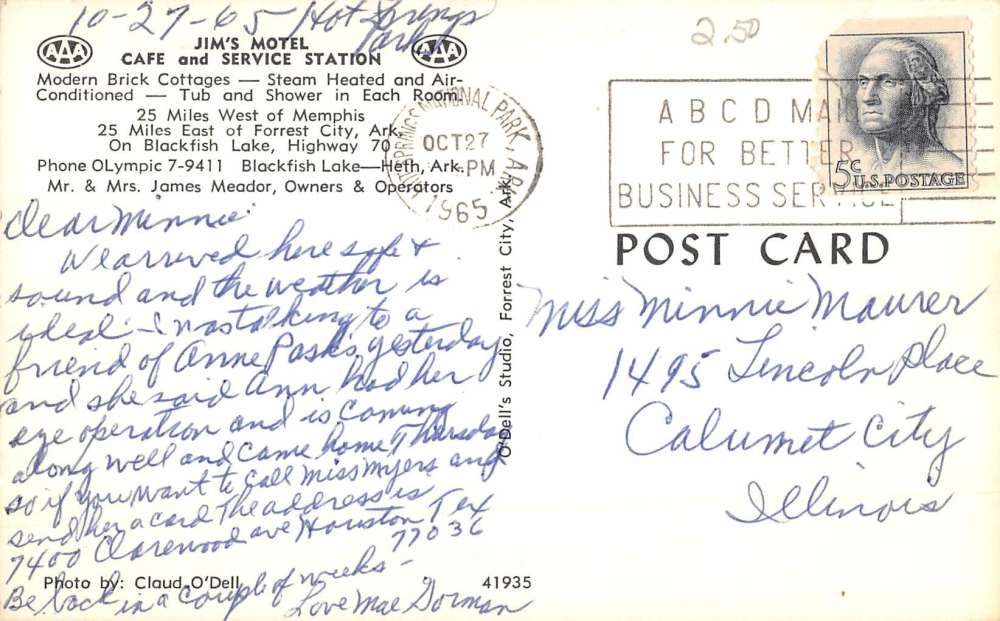 10-27-65 Hot Springs
Park
AAA
JIM'S MOTEL
AAA
CAFE and SERVICE STATION
Modern Brick Cottages — Steam Heated and Air-
Conditioned — Tub and Shower in Each Room.
25 Miles West of Memphis
25 Miles East of Forrest City, Ark.
On Blackfish Lake, Highway 70
Phone OLympic 7-9411 Blackfish Lake—Heth, Ark.
Mr. & Mrs. James Meador, Owners & Operators
Dear Minnie:
We arrived here safe &
sound and the weather is
ideal - I was talking to a
friend of Anne Pask's yesterday
and she said Ann had her
eye operation and is coming
along well and came home Thursday
so if you want to call Miss Myers and
send her a card The address is
7400 Clarewood ave Houston Tex
77036
Photo by: Claud O'Dell
41935
Be back in a couple of weeks -
Love Mae Gorman
O'Dell's Studio, Forrest City, Ark.
HOT SPRINGS NATIONAL PARK, ARK.
OCT 27
PM
1965
2.50
A B C D MAIL
FOR BETTER
BUSINESS SERVICE
5¢ U.S. POSTAGE
POST CARD
Miss Minnie Maurer
1495 Lincoln Place
Calumet City
Illinois